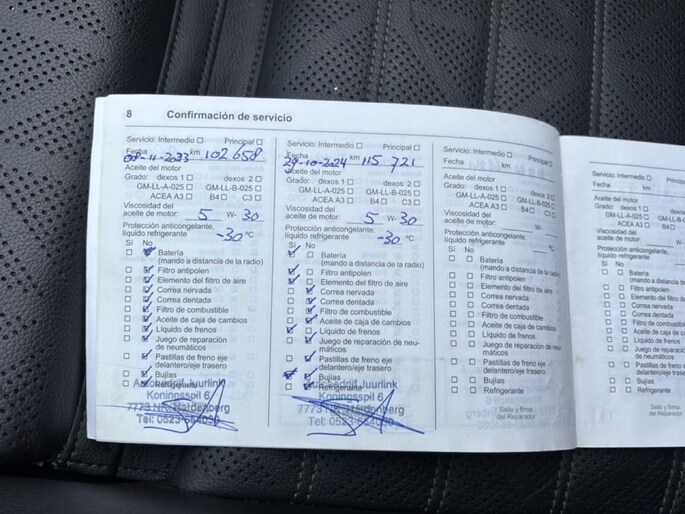 8 Confirmación de servicio
Servicio: Intermedio Principal
Fecha 08-11-2023 km 102 658
Aceite del motor
Grado: dexos 1 dexos 2
GM-LL-A-025 GM-LL-B-025
ACEA A3 B4 C3
Viscosidad del
aceite de motor: 5 W- 30
Protección anticongelante,
líquido refrigerante -30 °C
Sí No
Batería
(mando a distancia de la radio)
Filtro antipolen
Elemento del filtro de aire
Correa nervada
Correa dentada
Filtro de combustible
Aceite de caja de cambios
Líquido de frenos
Juego de reparación
de neumáticos
Pastillas de freno eje
delantero/eje trasero
Bujías
Refrigerante
Autobedrijf Juurlink
Koningsspil 6
7773 NK Hardenberg
Tel: 0523-684090
Servicio: Intermedio Principal
Fecha 29-10-2024 km 115 721
Aceite del motor
Grado: dexos 1 dexos 2
GM-LL-A-025 GM-LL-B-025
ACEA A3 B4 C3
Viscosidad del
aceite de motor: 5 W- 30
Protección anticongelante,
líquido refrigerante -30 °C
Sí No
Batería
(mando a distancia de la radio)
Filtro antipolen
Elemento del filtro de aire
Correa nervada
Correa dentada
Filtro de combustible
Aceite de caja de cambios
Líquido de frenos
Juego de reparación de neu-
máticos
Pastillas de freno eje
delantero/eje trasero
Bujías
Refrigerante
Juurlink
Koningsspil 6
7773 NK Hardenberg
Tel: 0523-684090
Servicio: Intermedio Principal
Fecha km
Aceite del motor
Grado: dexos 1 dexos 2
GM-LL-A-025 GM-LL-B-025
ACEA A3 B4 C3
Viscosidad del
aceite de motor: W-
Protección anticongelante,
líquido refrigerante °C
Sí No
Batería
(mando a distancia de la radio)
Filtro antipolen
Elemento del filtro de aire
Correa nervada
Correa dentada
Filtro de combustible
Aceite de caja de cambios
Líquido de frenos
Juego de reparación
de neumáticos
Pastillas de freno eje
delantero/eje trasero
Bujías
Refrigerante
Sello y firma
del Reparador
Servicio: Intermedio Principal
Fecha km
Aceite del motor
Grado: dexos 1 dexos 2
GM-LL-A-025 GM-LL-B-025
ACEA A3 B4
Viscosidad del
aceite de motor: W-
Protección anticongelante,
líquido refrigerante
Sí No
Batería
(mando a distancia de la
Filtro antipolen
Elemento del filtro de
Correa nervada
Correa dentada
Filtro de combustible
Aceite de caja de cambios
Líquido de frenos
Juego de reparación
de neumáticos
Pastillas de freno eje
delantero/eje trasero
Bujías
Refrigerante
Sello y firma
del Reparador